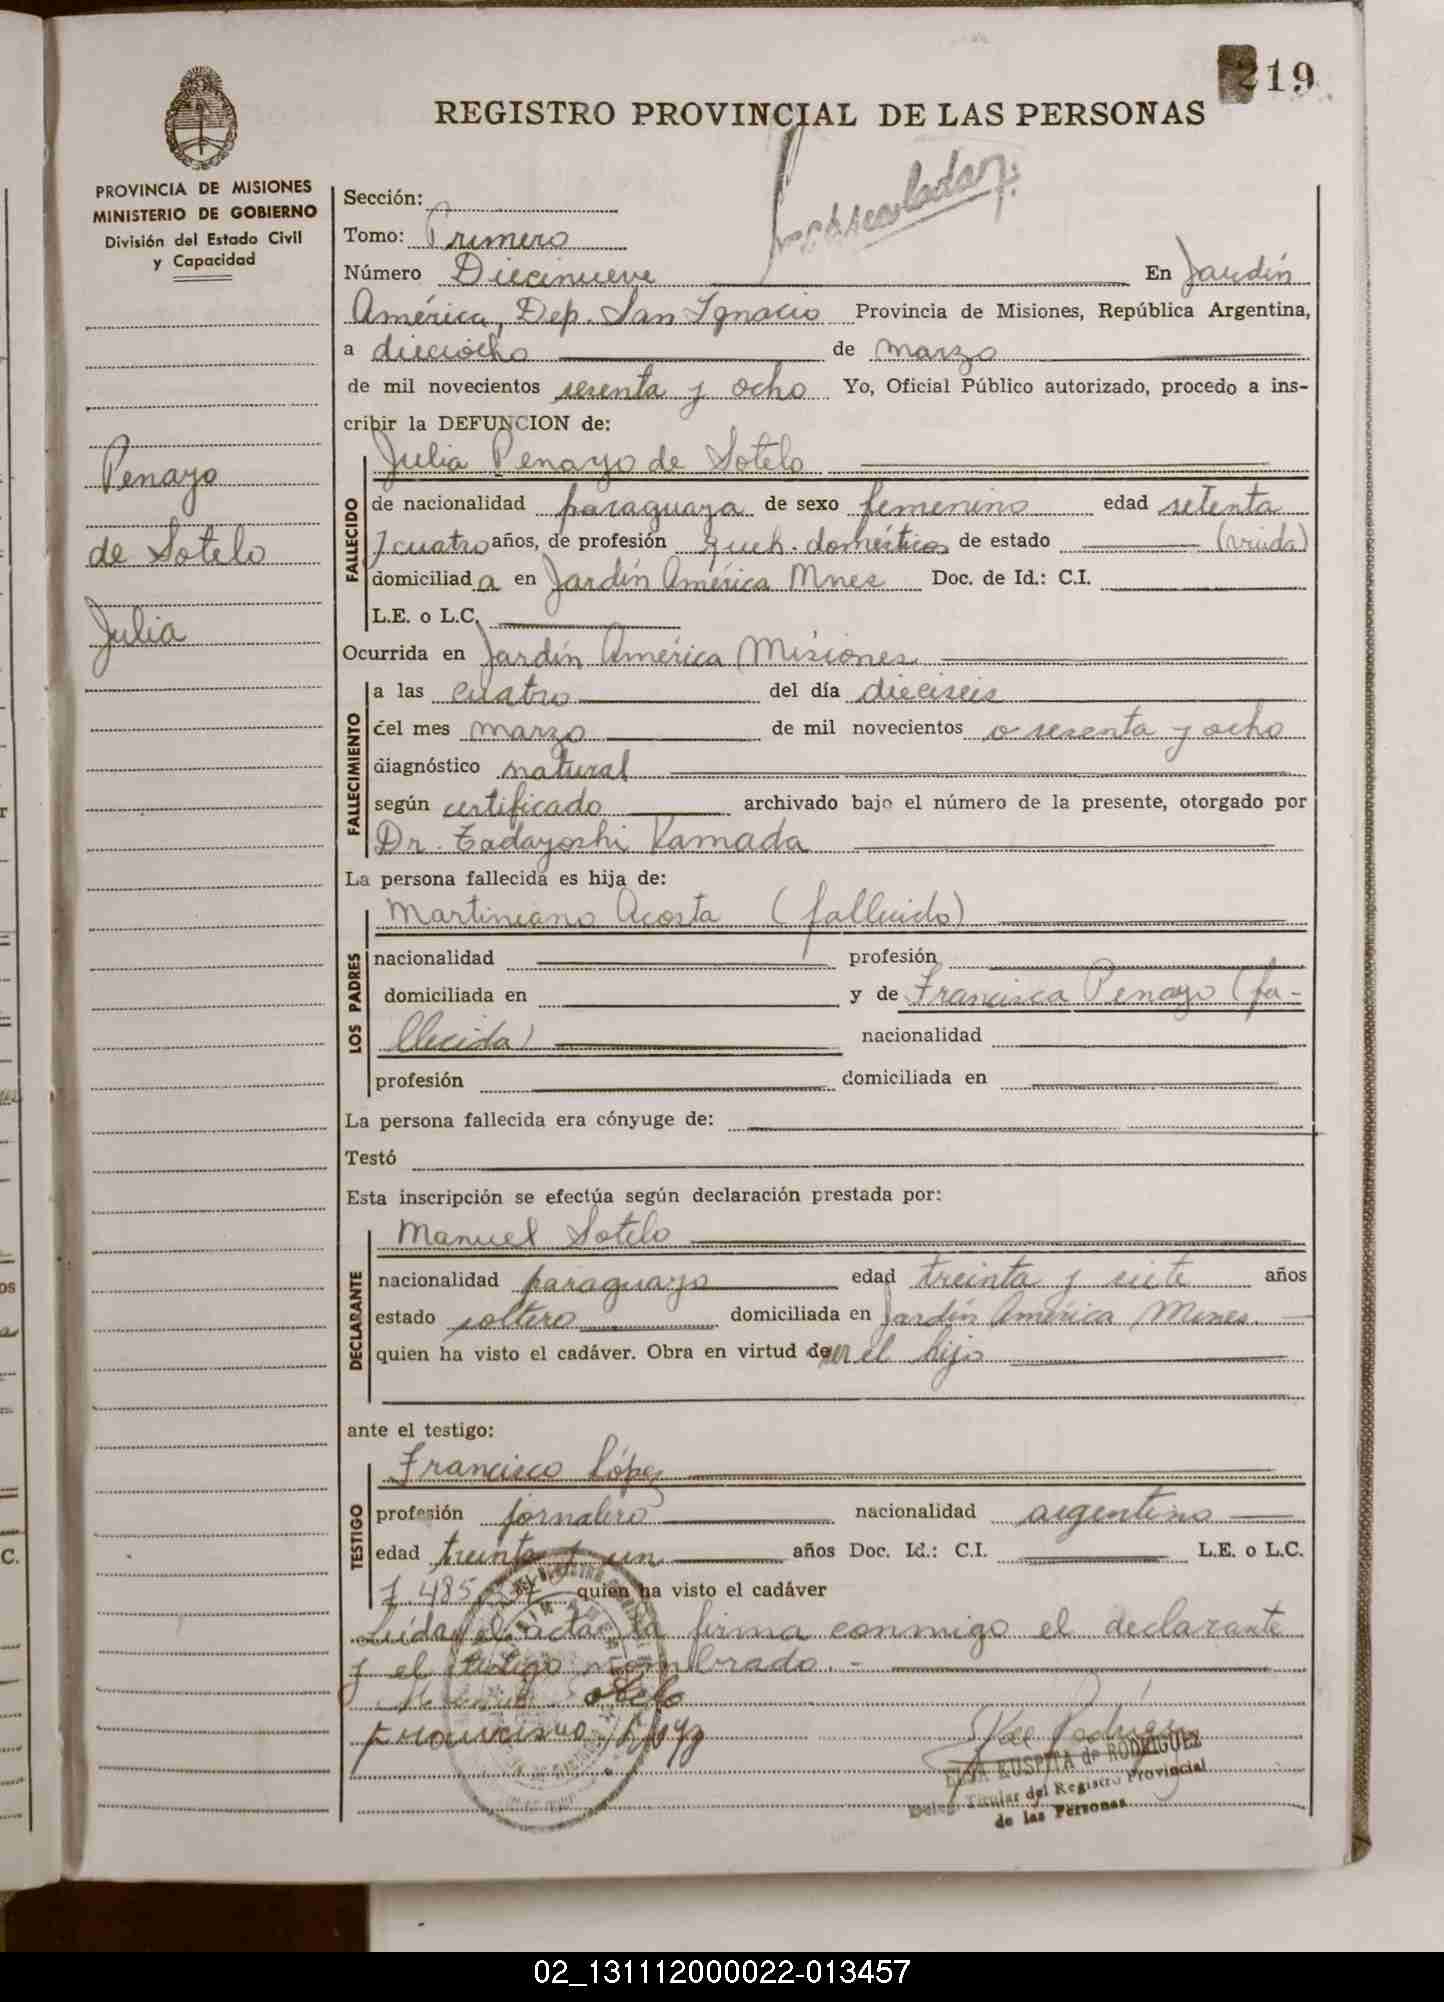 219
REGISTRO PROVINCIAL DE LAS PERSONAS
PROVINCIA DE MISIONES
MINISTERIO DE GOBIERNO
División del Estado Civil
y Capacidad
Penayo
de Sotelo
Julia
Sección:
Tomo: Primero
Número Diecinueve En Jardín
América, Dep. San Ignacio Provincia de Misiones, República Argentina,
a dieciocho de marzo
de mil novecientos sesenta y ocho Yo, Oficial Público autorizado, procedo a ins-
cribir la DEFUNCION de:
Julia Penayo de Sotelo
FALLECIDO
de nacionalidad paraguaya de sexo femenino edad setenta
y cuatro años, de profesión queh. domésticos de estado (viuda)
domiciliad a en Jardín América Mnes Doc. de Id.: C.I.
L.E. o L.C.
Ocurrida en Jardín América Misiones
FALLECIMIENTO
a las cuatro del día dieciseis
del mes marzo de mil novecientos o sesenta y ocho
diagnóstico natural
según certificado archivado bajo el número de la presente, otorgado por
Dr. Tadayoshi Kamada
La persona fallecida es hija de:
Martiniano Acosta (fallecido)
LOS PADRES
nacionalidad profesión
domiciliada en y de Francisca Penayo (fa-
llecida) nacionalidad
profesión domiciliada en
La persona fallecida era cónyuge de:
Testó
Esta inscripción se efectúa según declaración prestada por:
Manuel Sotelo
DECLARANTE
nacionalidad paraguayo edad treinta y siete años
estado soltero domiciliada en Jardín América Mnes.
quien ha visto el cadáver. Obra en virtud de ser el hijo
ante el testigo:
Francisco López
TESTIGO
profesión jornalero nacionalidad argentino
edad treinta y un años Doc. Id.: C.I. L.E. o L.C.
7 485 quien ha visto el cadáver
Leída el acta la firma conmigo el declarante
y el testigo nombrado.-
Manuel Sotelo
Francisco López
KUSPITA de RODRIGUEZ
Deleg. Titular del Registro Provincial
de las Personas
02_131112000022-013457